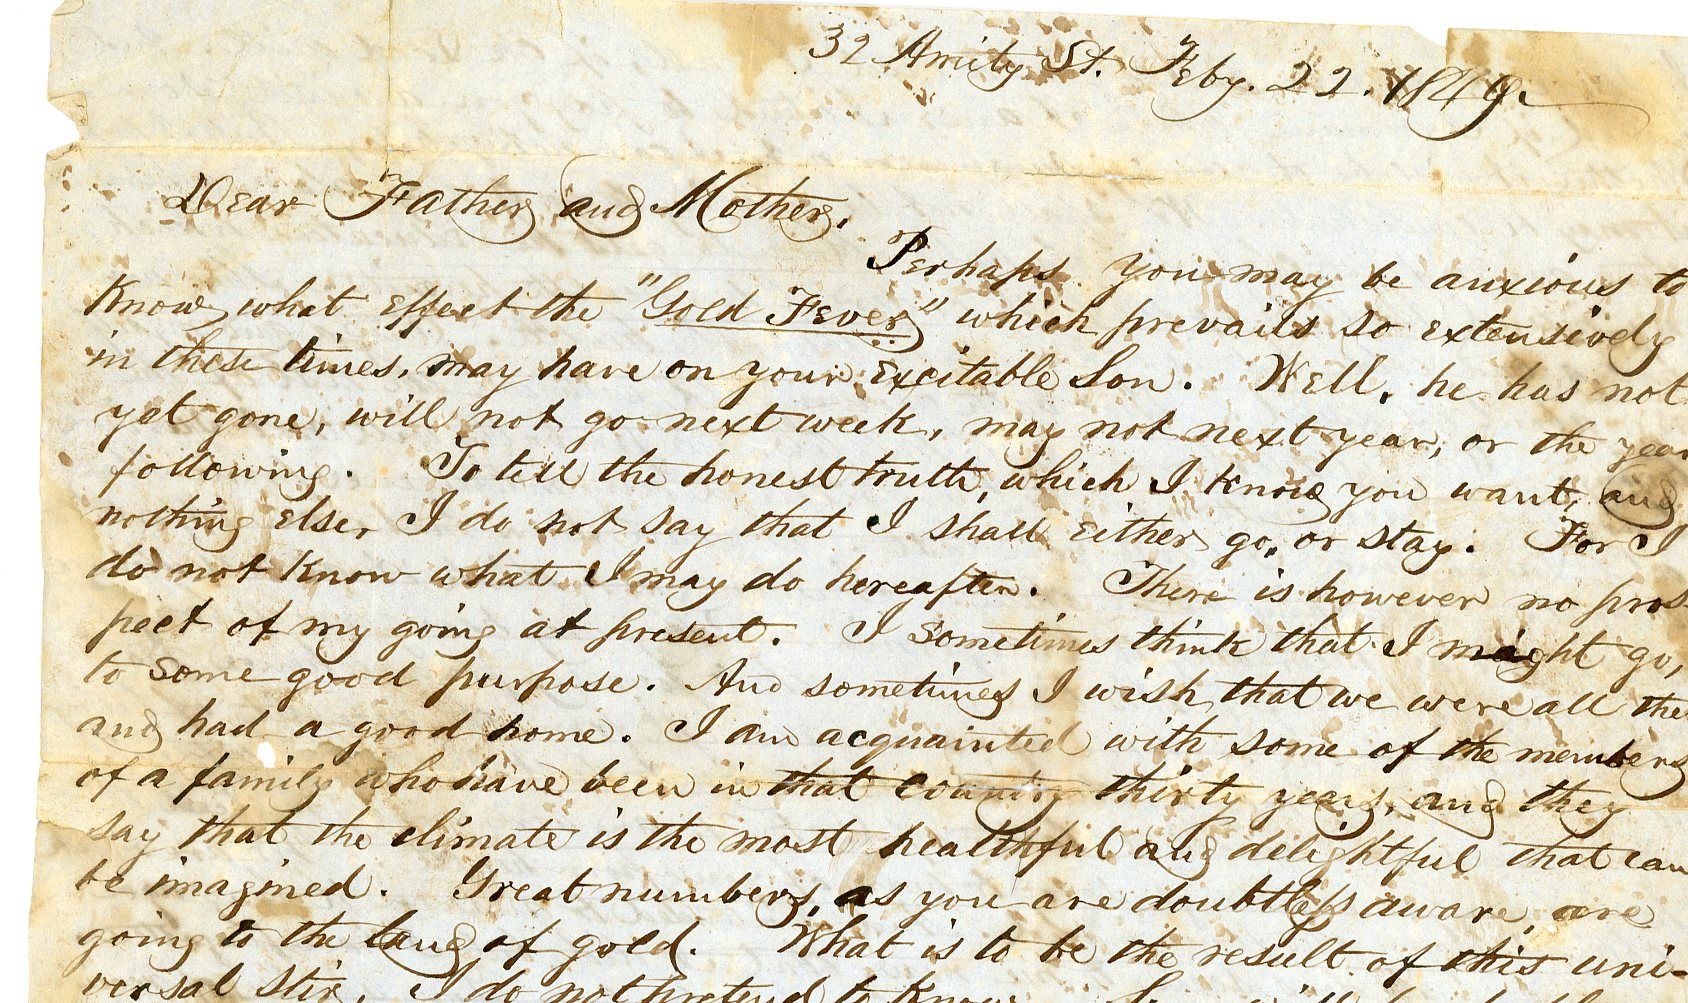 32 Amity St. Feby. 22. 1849.
Dear Father and Mother,
Perhaps you may be anxious to
know what effect the "Gold Fever" which prevails so extensively
in these times, may have on your excitable Son. Well, he has not
yet gone, will not go next week, may not next year, or the year
following. To tell the honest truth, which I know you want, and
nothing else, I do not say that I shall either go, or stay. For I
do not know what I may do hereafter. There is however no pros-
pect of my going at present. I sometimes think that I might go,
to some good purpose. And sometimes I wish that we were all the
and had a good home. I am acquainted with some of the members
of a family who have been in that country thirty years, and they
say that the climate is the most healthful and delightful that can
be imagined. Great numbers, as you are doubtless aware, are
going to the land of gold. What is to be the result of this uni-
versal stir, I do not pretend to know.